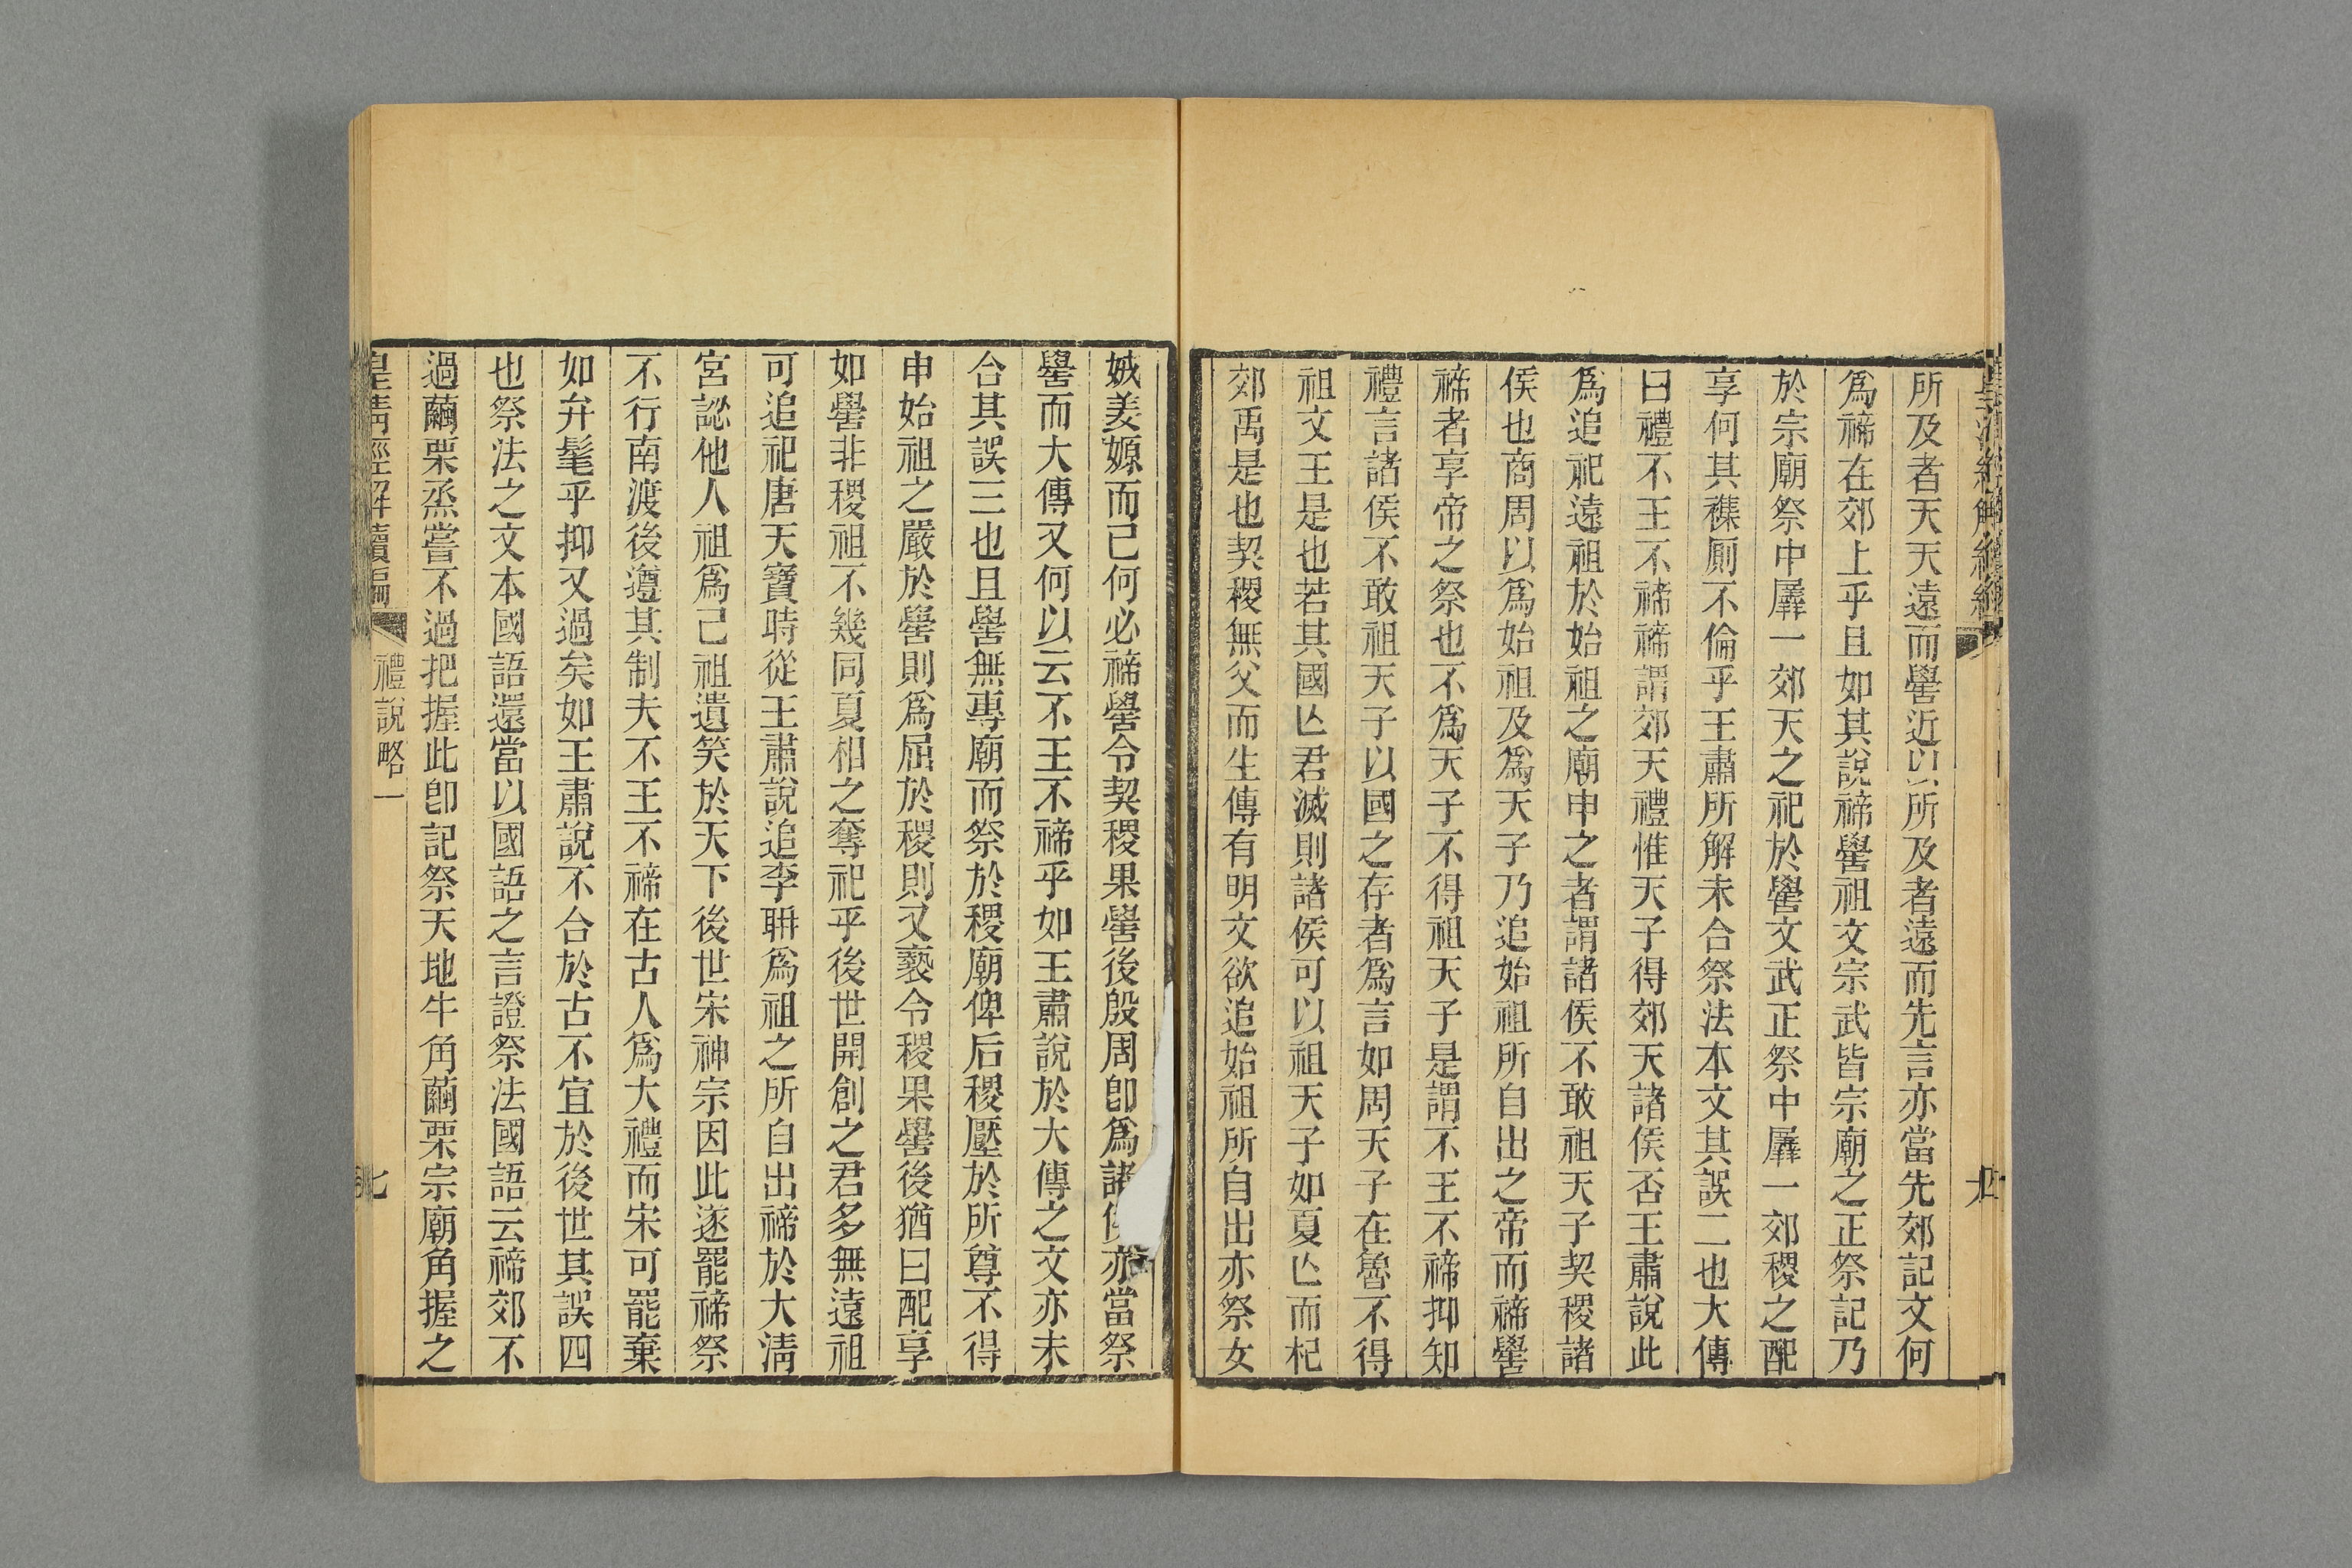 所及者天天遠而嚳近以所及者遠而先言亦當先郊記文何
爲禘在郊上乎且如其說禘嚳祖文宗武皆宗廟之正祭記乃
於宗廟祭中羼一郊天之祀於嚳文武正祭中羼一郊稷之配
享何其襍厠不倫乎王肅所解未合祭法本文其誤二也大傳
曰禮不王不禘禘謂郊天禮惟天子得郊天諸侯否王肅說此
爲追祀遠祖於始祖之廟申之者謂諸侯不敢祖天子契稷諸
侯也商周以爲始祖及爲天子乃追始祖所自出之帝而禘嚳
禘者享帝之祭也不爲天子不得祖天子是謂不王不禘抑知
禮言諸侯不敢祖天子以國之存者爲言如周天子在魯不得
祖文王是也若其國亾君滅則諸侯可以祖天子如夏亾而杞
郊禹是也契稷無父而生傳有明文欲追始祖所自出亦祭女
娀姜嫄而已何必禘嚳令契稷果嚳後殷周卽爲諸亦當祭
嚳而大傳又何以云不王不禘乎如王肅說於大傳之文亦未
合其誤三也且嚳無專廟而祭於稷廟俾后稷壓於所尊不得
申始祖之嚴於嚳則爲屈於稷則又褻令稷果嚳後猶曰配享
如嚳非稷祖不幾同夏相之奪祀乎後世開創之君多無遠祖
可追祀唐天寶時從王肅說追李耼爲祖之所自出禘於大淸
宮認他人祖爲己祖遺笑於天下後世宋神宗因此遂罷禘祭
不行南渡後遵其制夫不王不禘在古人爲大禮而宋可罷棄
如弁髦乎抑又過矣如王肅說不合於古不宜於後世其誤四
也祭法之文本國語還當以國語之言證祭法國語云禘郊不
過繭栗烝嘗不過把握此卽記祭天地牛角繭栗宗廟角握之
皇淸經解續編 禮說略一 七